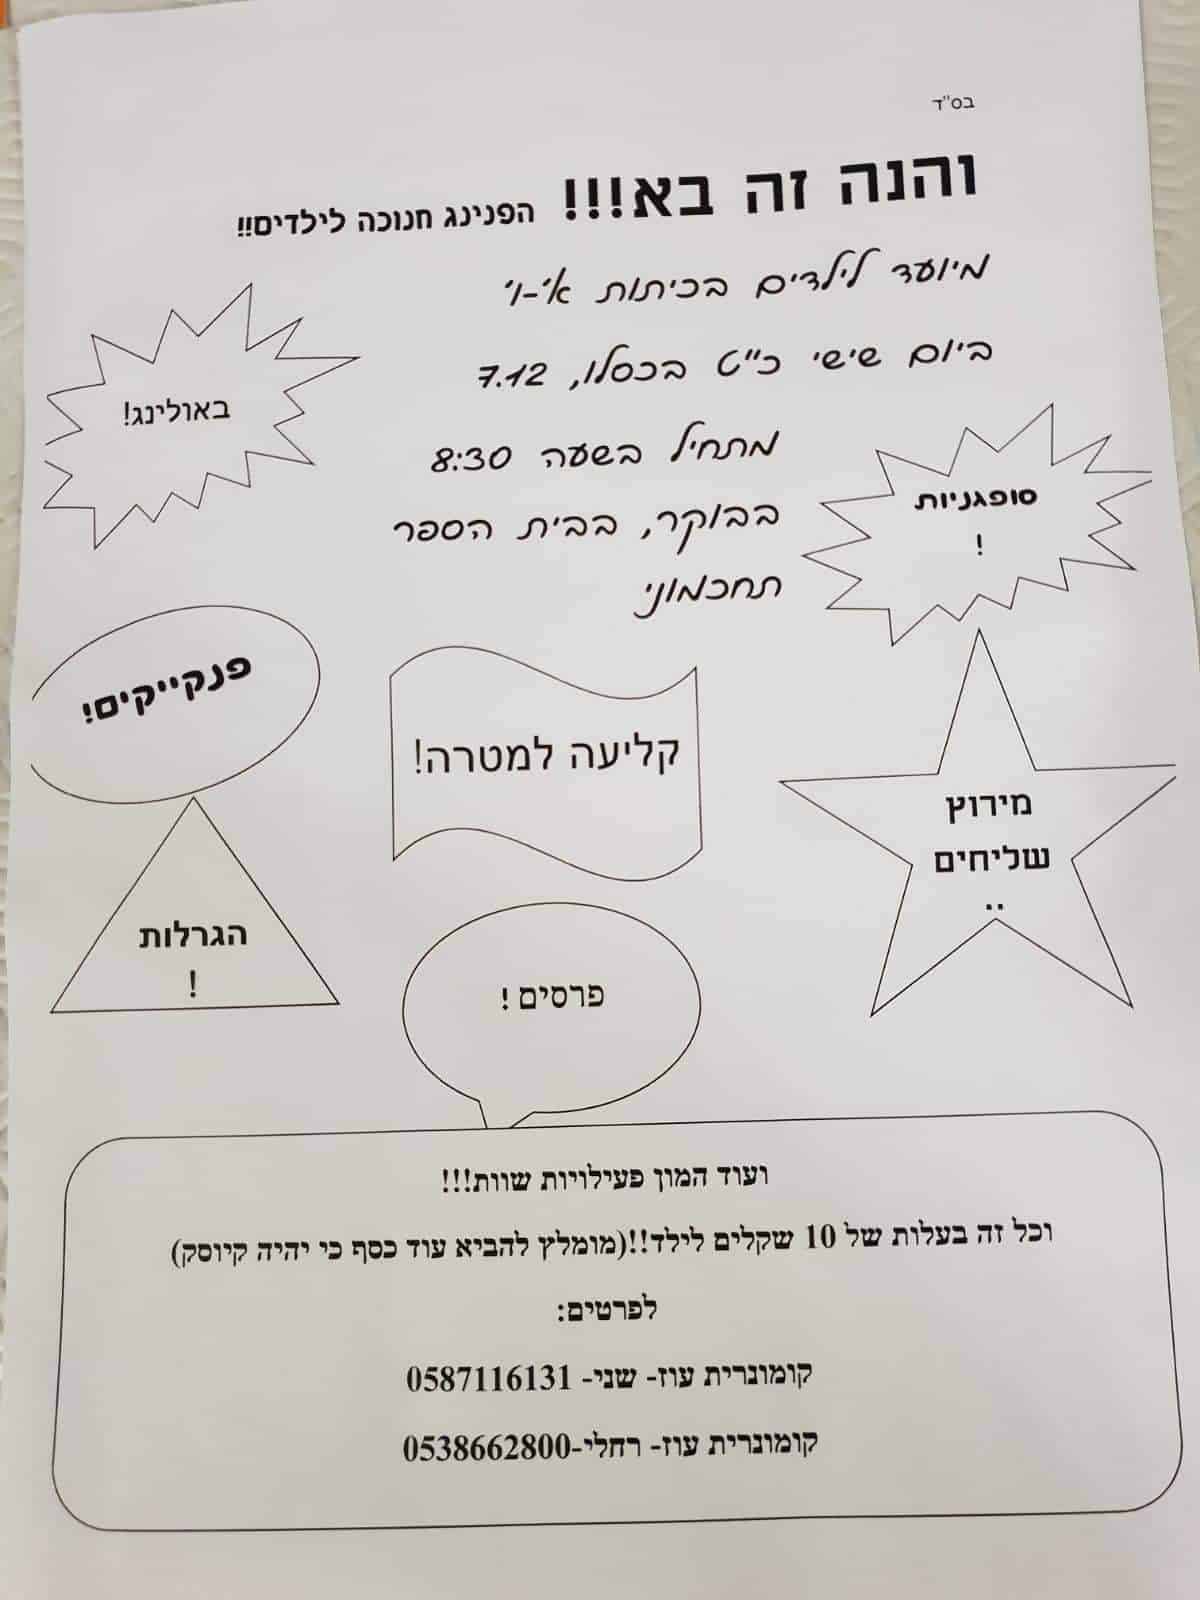 בס"ד
והנה זה בא!!! הפנינג חנוכה לילדים!!
מיועד לילדים בכיתות א'-ו'
ביום שישי כ"ט בכסלו, 7.12
מתחיל בשעה 8:30
בבוקר, בבית הספר
תחכמוני
באולינג!
סופגניות
!
פנקייקים!
קליעה למטרה!
מירוץ
שליחים
..
הגרלות
!
פרסים !
ועוד המון פעילויות שוות!!!
וכל זה בעלות של 10 שקלים לילד!!(מומלץ להביא עוד כסף כי יהיה קיוסק)
לפרטים:
קומונרית עוז- שני- 0587116131
קומונרית עוז- רחלי-0538662800